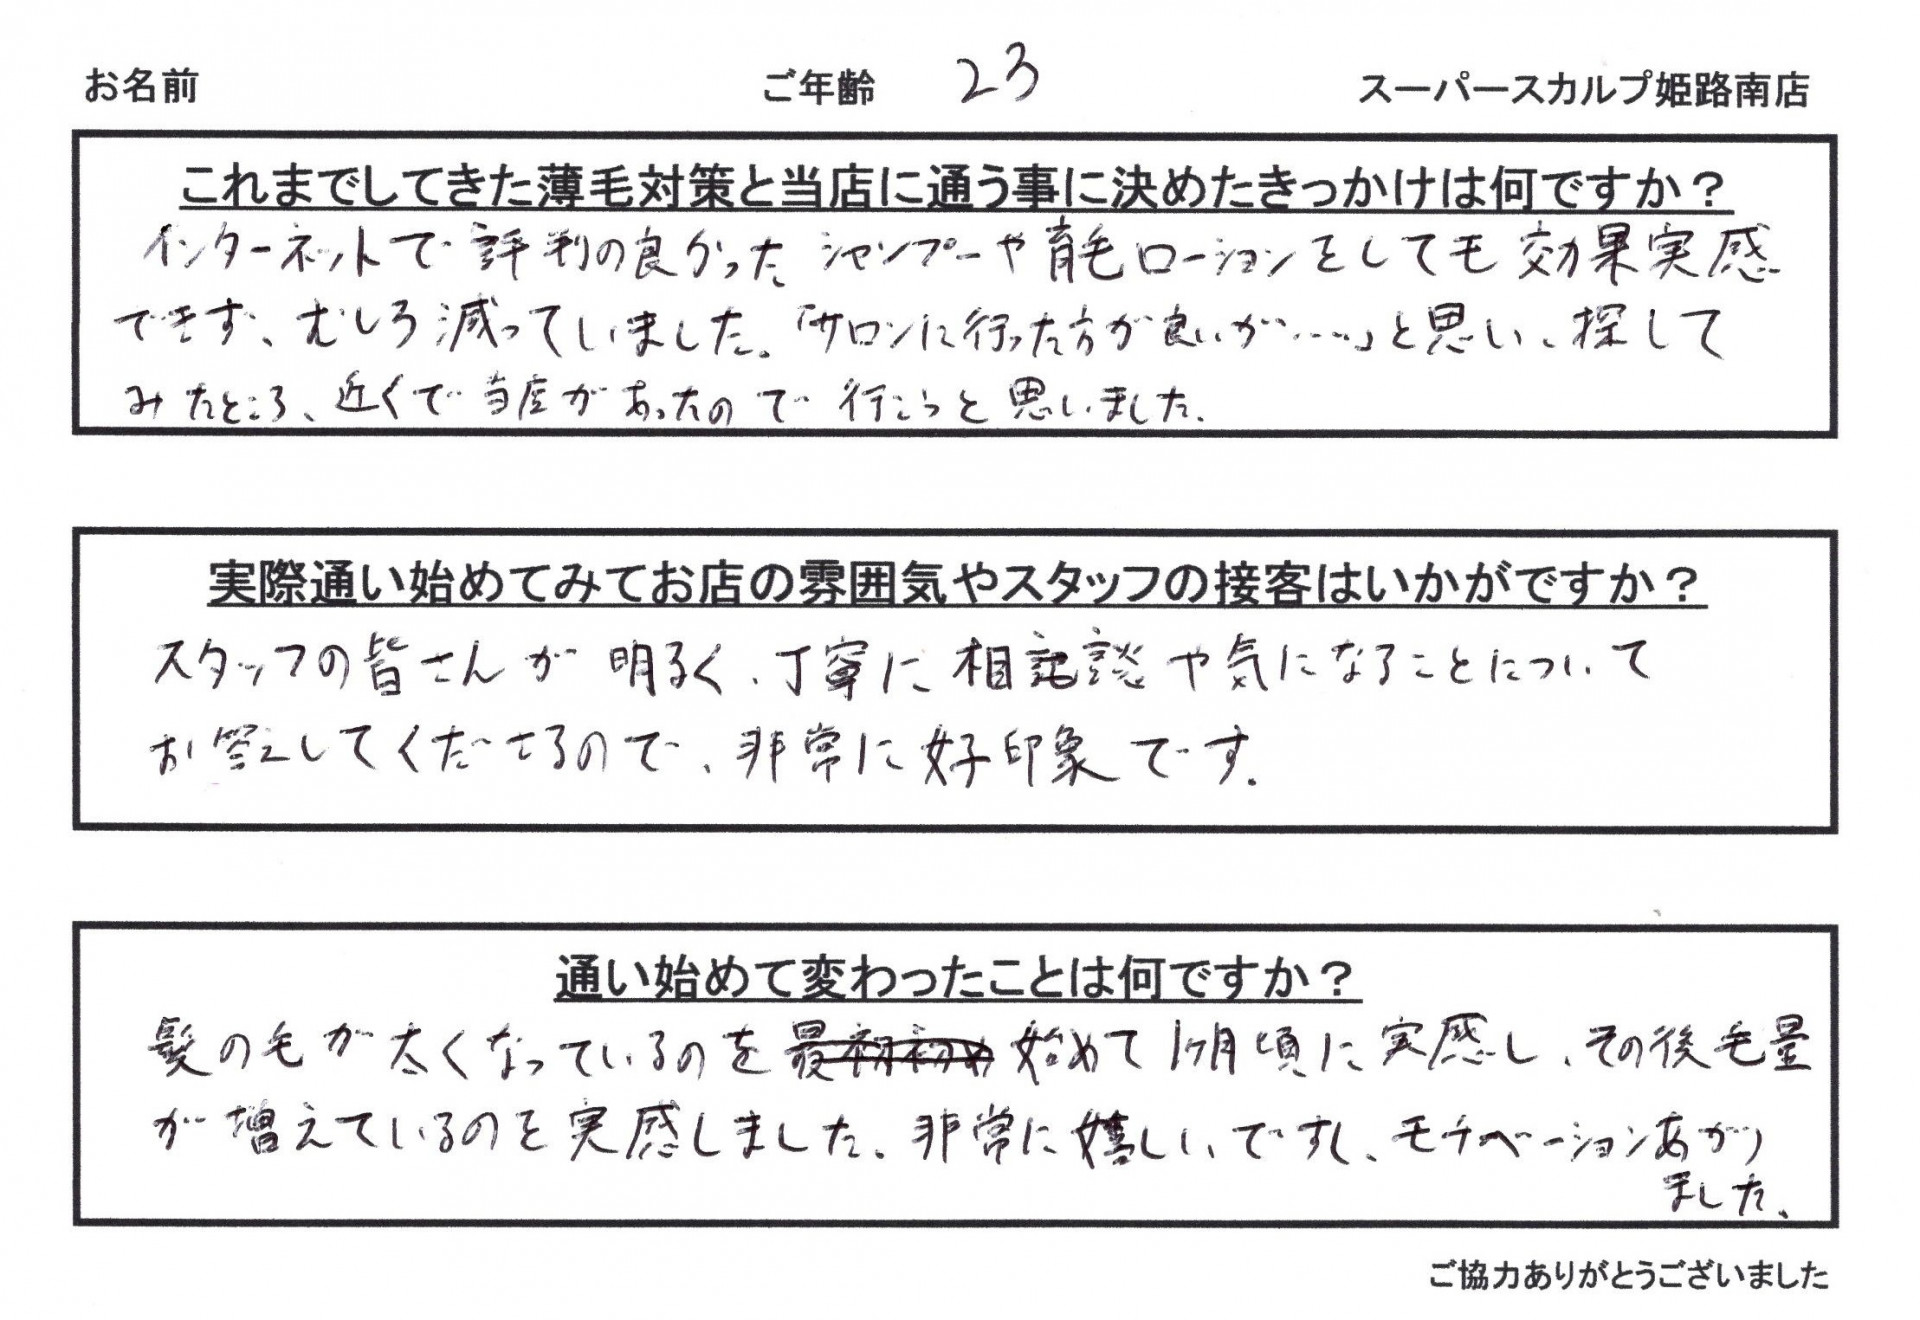 お名前 ご年齢 23 スーパースカルプ姫路南店
これまでしてきた薄毛対策と当店に通う事に決めたきっかけは何ですか？
インターネットで評判の良かったシャンプーや育毛ローションをしても効果実感
できず、むしろ減っていました。「サロンに行った方が良いが……」と思い、探して
みたところ、近くで当店があったので行こうと思いました。
実際通い始めてみてお店の雰囲気やスタッフの接客はいかがですか？
スタッフの皆さんが明るく、丁寧に相談や気になることについて
お答えしてくださるので、非常に好印象です。
通い始めて変わったことは何ですか？
髪の毛が太くなっているのを始めて1ヶ月頃に実感し、その後毛量
が増えているのを実感しました。非常に嬉しいですし、モチベーションあがり
ました。
ご協力ありがとうございました